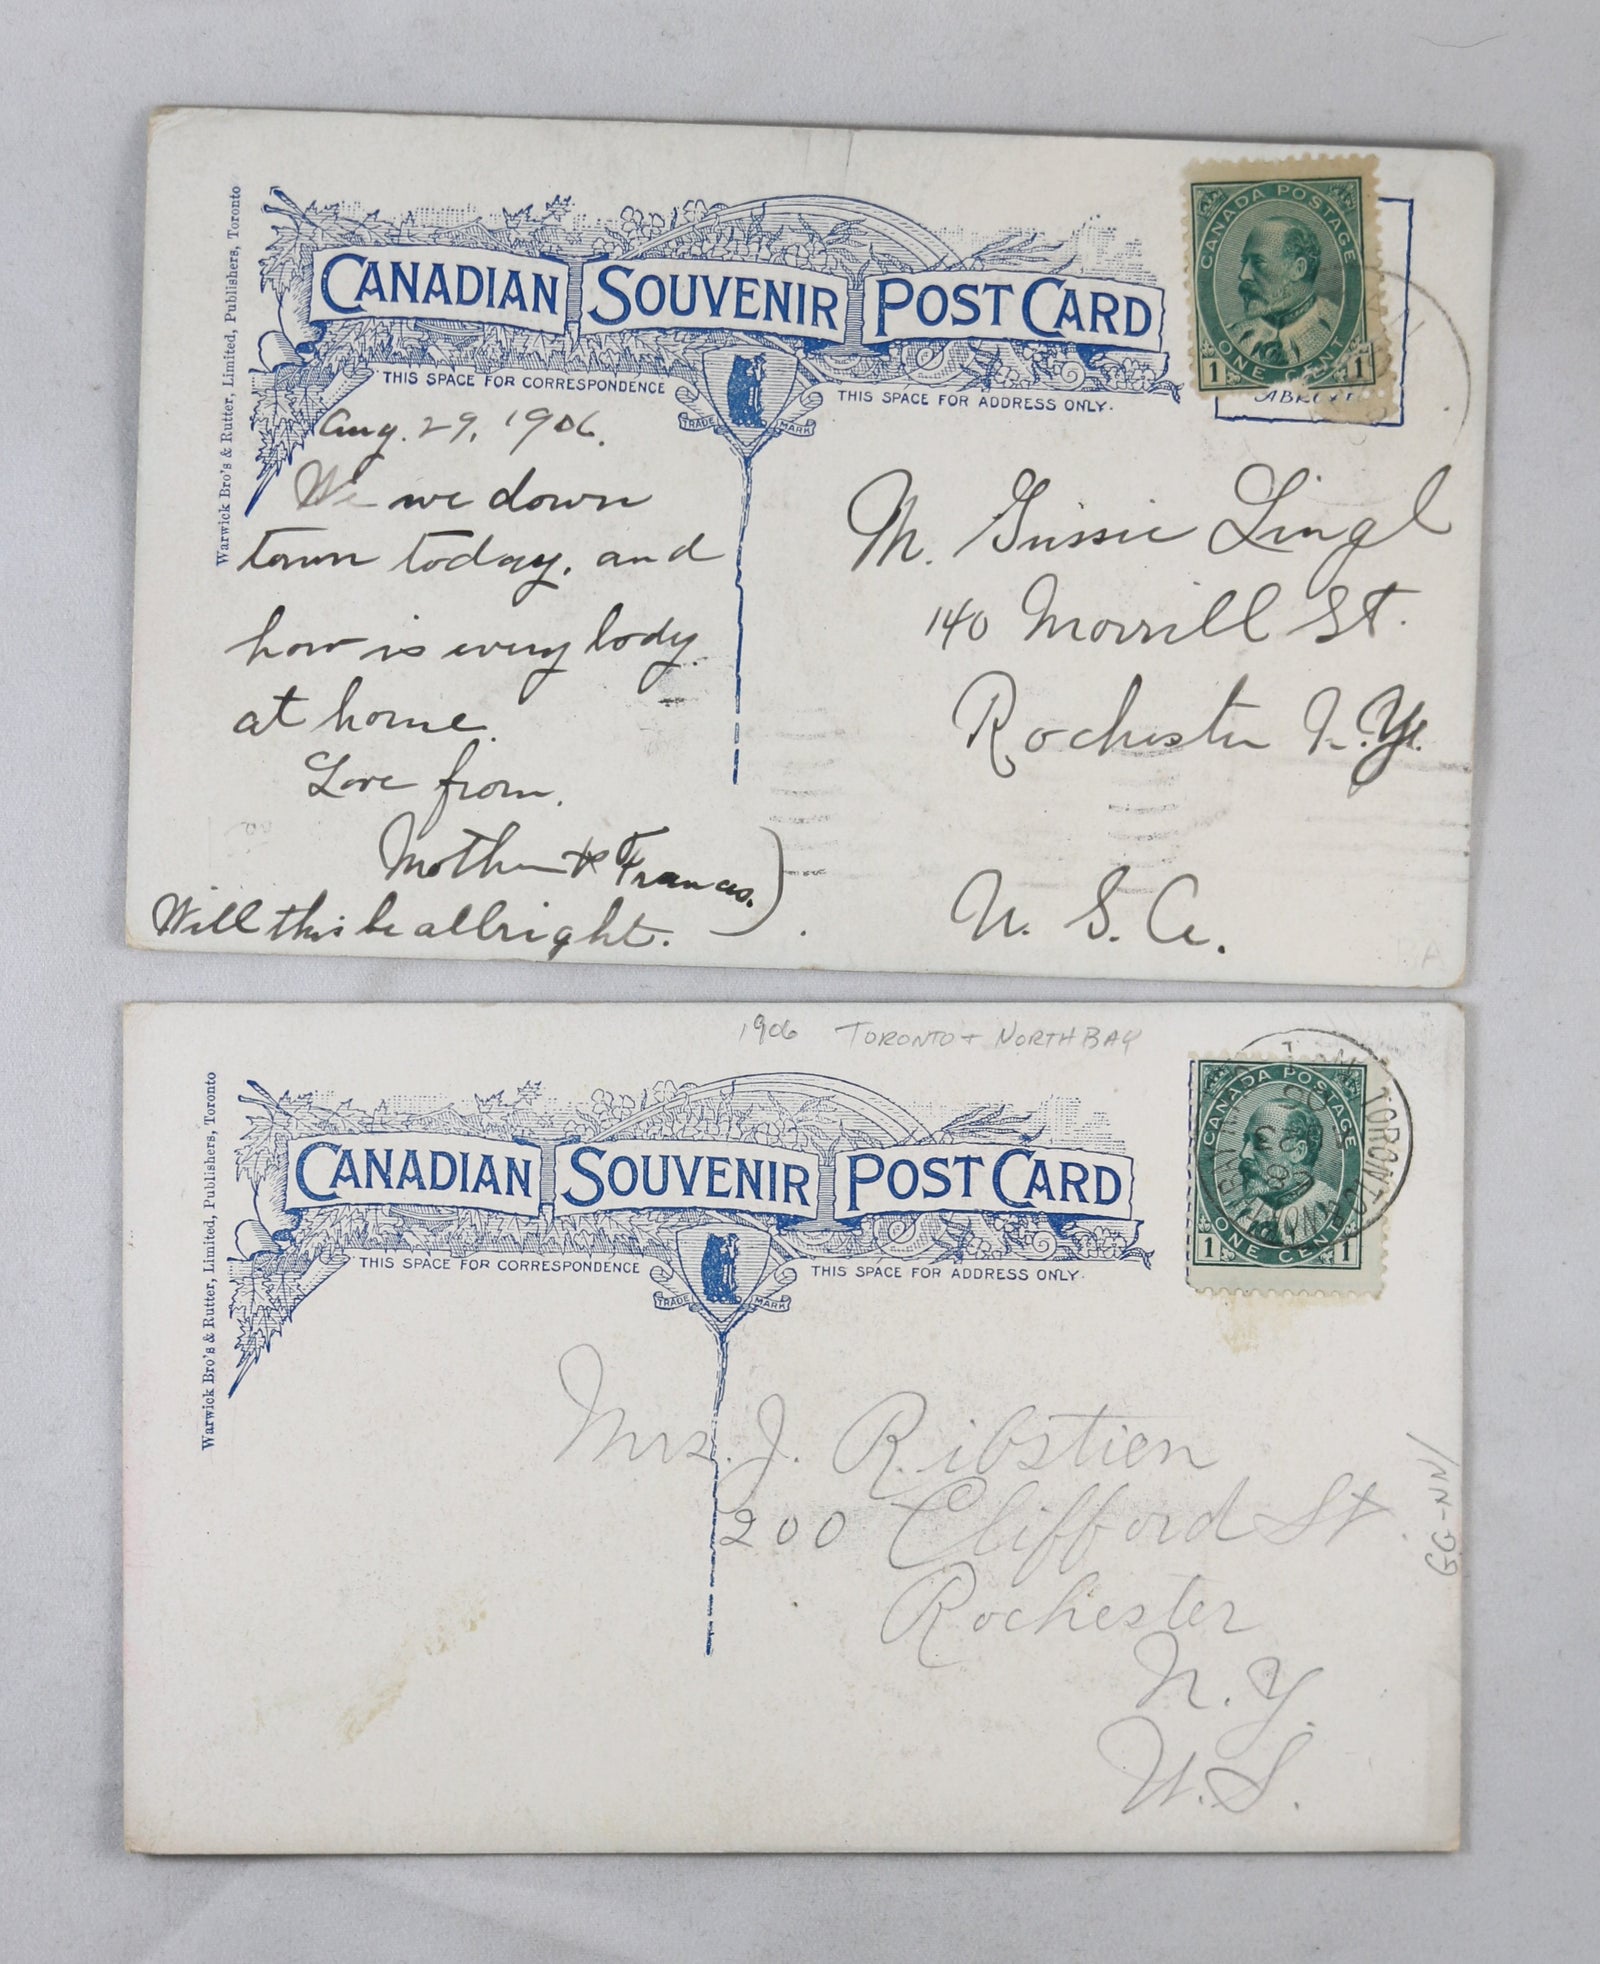 Warwick Bro's & Rutter, Limited, Publishers, Toronto
CANADIAN SOUVENIR POST CARD
THIS SPACE FOR CORRESPONDENCE
THIS SPACE FOR ADDRESS ONLY.
TRADE MARK
CANADA POSTAGE
ONE CENT
1 1
Aug. 29, 1906.
We we down
town today, and
how is every body
at home.
Love from.
Mother & Frances.
Will this be allright.
M. Gussie Lingl
140 Morrill St.
Rochester N.Y.
U. S. A.
1906 TORONTO + NORTH BAY
Warwick Bro's & Rutter, Limited, Publishers, Toronto
CANADIAN SOUVENIR POST CARD
THIS SPACE FOR CORRESPONDENCE
THIS SPACE FOR ADDRESS ONLY.
TRADE MARK
CANADA POSTAGE
ONE CENT
1 1
TORONTO
Mrs. J. Ribstien
200 Clifford St.
Rochester
N.Y.
U.S.
GG-NN/